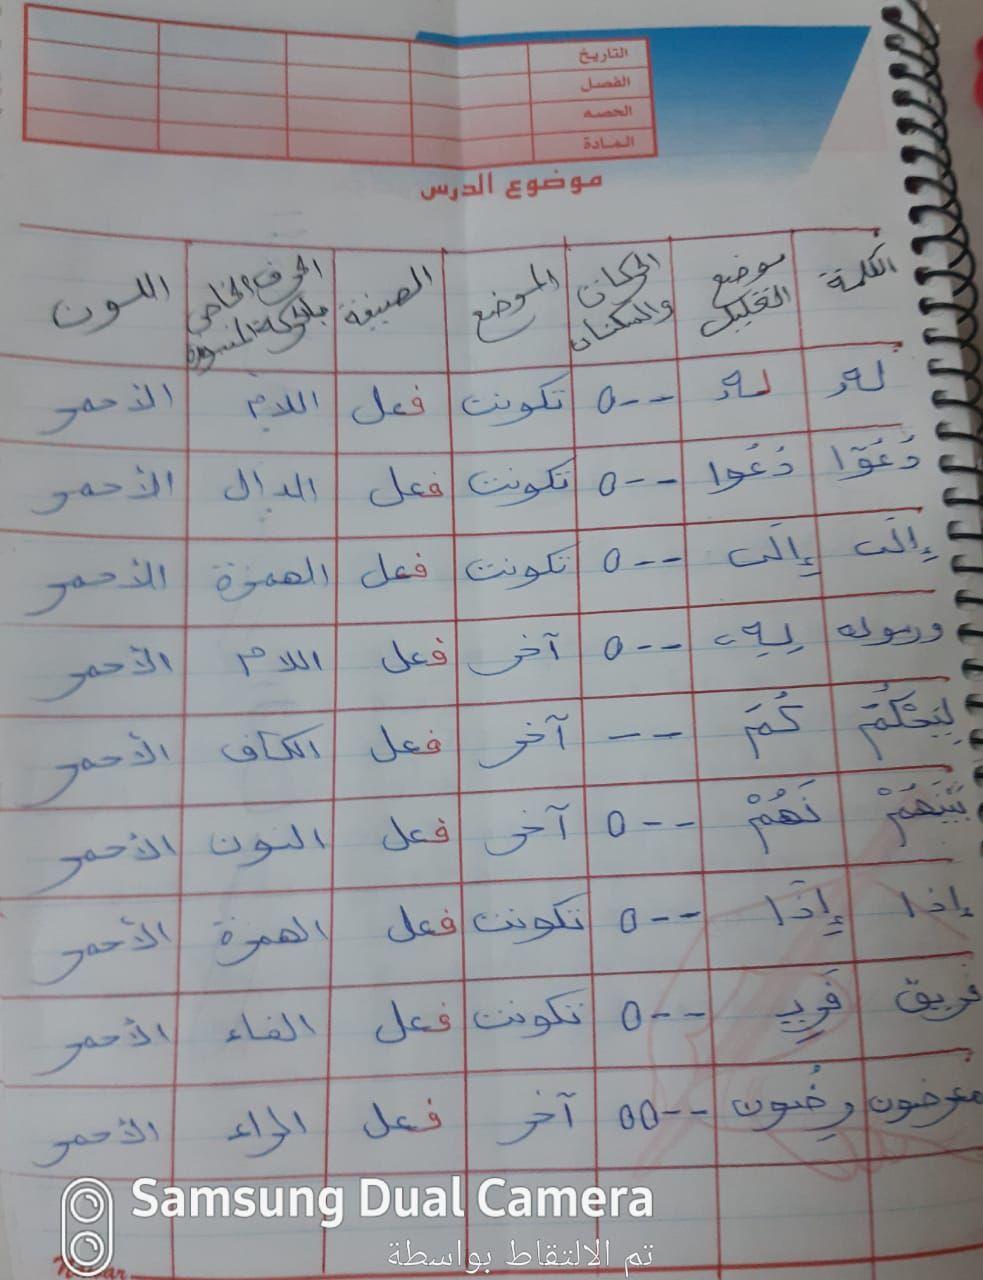 التاريخ
الفصل
الحصه
المادة
موضوع الدرس
الكلمة موضع التحليل الحركات والسكنات الموضع الصيغة الحرف الخاص بالحركة اللون
له له --o تكونت فعل اللام الأحمر
دُعُوٓا دُعُوا --o تكونت فعل الدال الأحمر
إِلَى إِلَى --o تكونت فعل الهمزة الأحمر
ورسوله لِهِ --o آخر فعل اللام الأحمر
لِيَحْكُمَ كُمَ -- آخر فعل الكاف الأحمر
بَيْنَهُمْ نَهُمْ --o آخر فعل النون الأحمر
إذا إِذَا --o تكونت فعل الهمزة الأحمر
فريق فَرِيـ --o تكونت فعل الفاء الأحمر
معرضون رِضُون --oo آخر فعل الراء الأحمر
Samsung Dual Camera
تم الالتقاط بواسطة